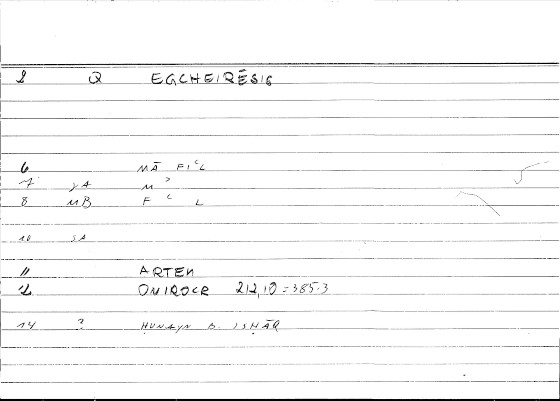 1 Q EGCHEIRĒSIS
6 MĀ FIᶜL
7 ȷA M ᵓ
8 MB F ᶜ L
10 SA
11 ARTEM
12 ONIROCR 212,10 = 385.3
14 ? ḤUNAYN B. ISḤĀQ